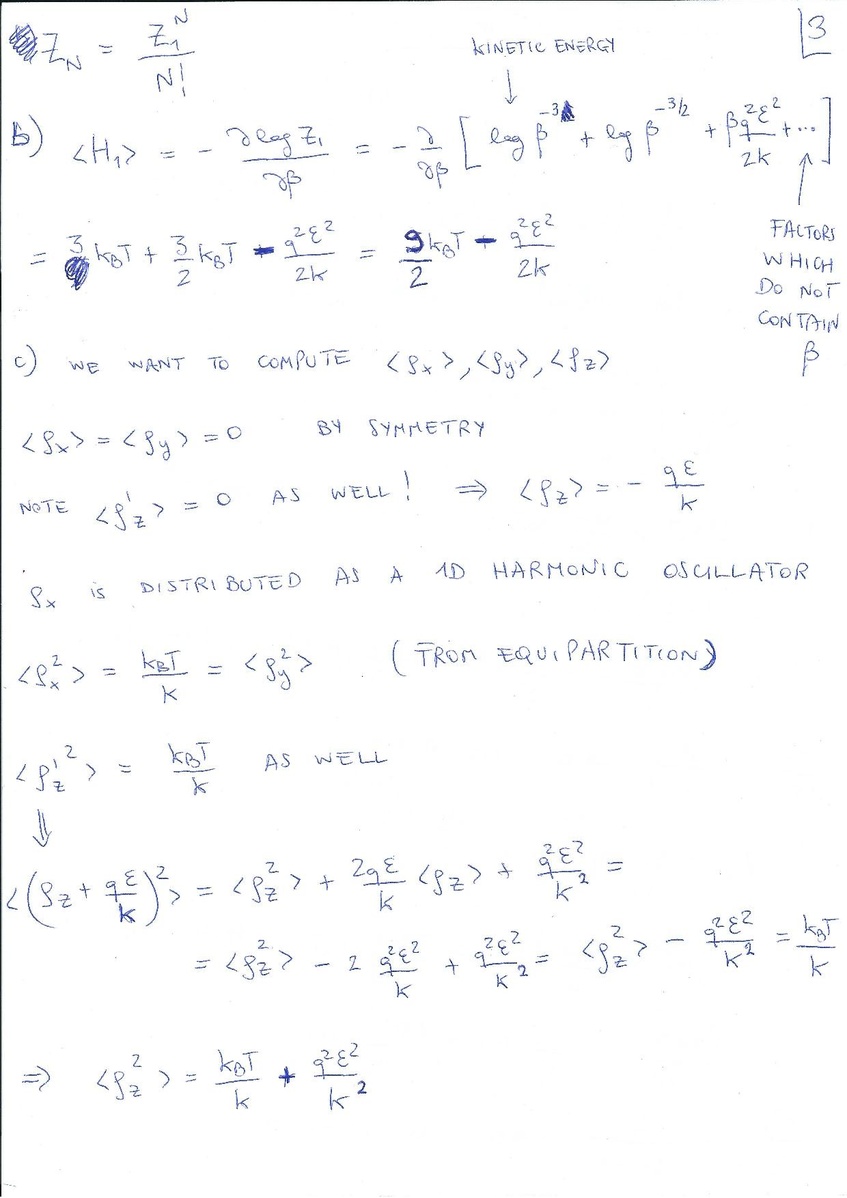 3
Z_N = Z_1^N / N!
KINETIC ENERGY
b) <H_1> = - ∂ log Z_1 / ∂β = - ∂/∂β [ log β^{-3} + log β^{-3/2} + β q²ε²/2k + ... ]
FACTORS
WHICH
DO NOT
CONTAIN
β
= 3 k_BT + 3/2 k_BT - q²ε²/2k = 9/2 k_BT - q²ε²/2k
c) WE WANT TO COMPUTE <ρ_x>, <ρ_y>, <ρ_z>
<ρ_x> = <ρ_y> = 0 BY SYMMETRY
NOTE <ρ'_z> = 0 AS WELL! ⇒ <ρ_z> = - qε/k
ρ_x is DISTRIBUTED AS A 1D HARMONIC OSCILLATOR
<ρ_x²> = k_BT/k = <ρ_y²> (FROM EQUIPARTITION)
<ρ'_z²> = k_BT/k AS WELL
⇓
<(ρ_z + qε/k)²> = <ρ_z²> + 2qε/k <ρ_z> + q²ε²/k² =
= <ρ_z²> - 2 q²ε²/k + q²ε²/k² = <ρ_z²> - q²ε²/k² = k_BT/k
⇒ <ρ_z²> = k_BT/k + q²ε²/k²